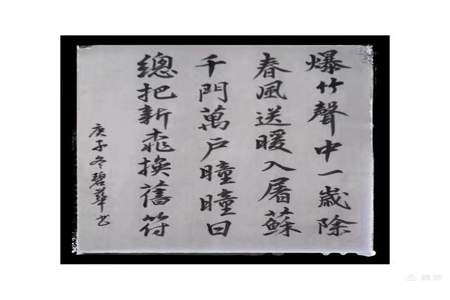 爆竹聲中一歲除
春風送暖入屠蘇
千門萬戶曈曈日
總把新桃換舊符
庚子冬碧華书